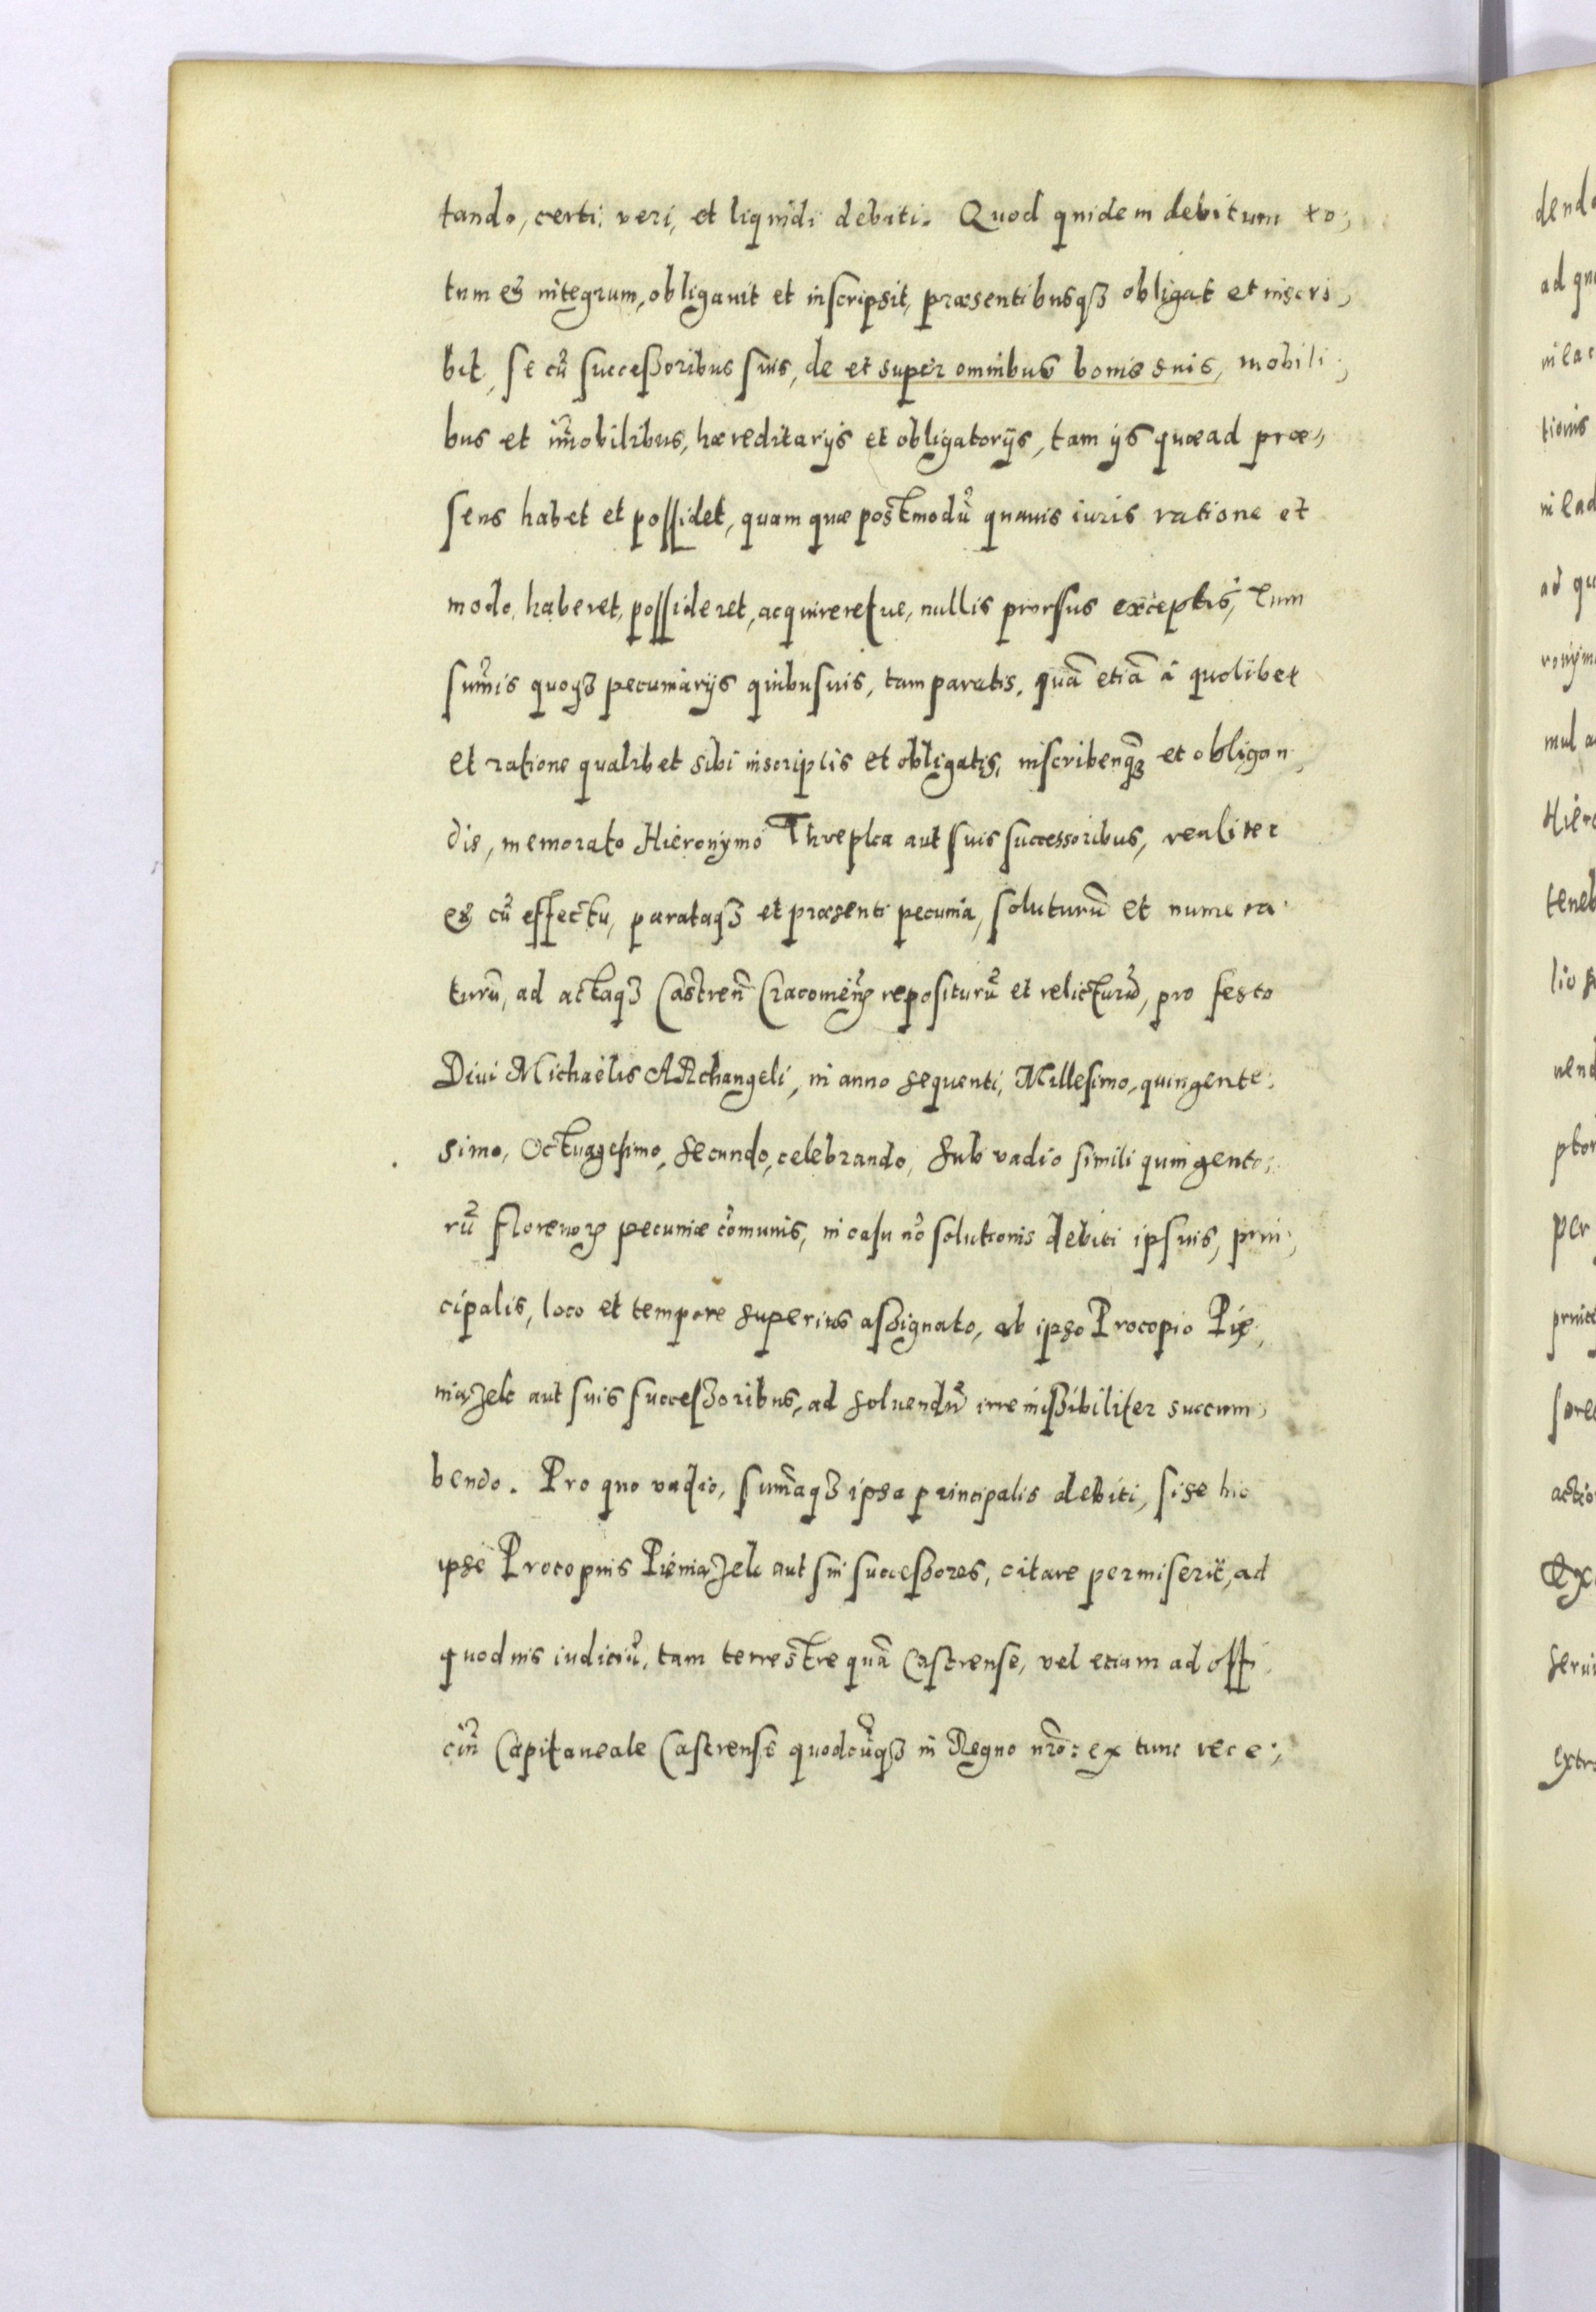 tando, certi, veri, et liquidi debiti. Quod quidem debitum to,
tum & integrum, obligauit et inscripsit, præsentibusqȝ obligat et inscri,
bit, se cũ successoribus suis, de et super omnibus bonis suis, mobili,
bus et im̃obilibus, hæreditarijs et obligatorijs, tam ijs quæ ad præ,
sens habet et possidet, quam quæ postmodũ quauis iuris ratione et
modo, haberet, possideret, acquireretue, nullis prorsus exceptis, tum
sum̃is quoqȝ pecuniarijs quibusuis, tam paratis, quã etiã à quolibet
et ratione qualibet sibi inscriptis et obligatis, inscribenqȝ et obligan,
dis, memorato Hieronymo Threpka aut suis successoribus, realiter
& cũ effectu, parataqȝ et præsenti pecunia, soluturũ et numera,
turũ, ad actaqȝ Castren̄ Cracouien̄ repositurũ et relicturũ, pro festo
Diui Michaëlis ARchangeli, in anno sequenti, Millesimo, quingente,
simo, Octuagesimo, secundo, celebrando, sub vadio simili quingento,
rũ florenoꝝ pecuniæ com̃unis, in casu nõ solutionis debiti ipsius, prin,
cipalis, loco et tempore superius assignato, ab ipso Procopio Pie,
niążek aut suis successoribus, ad soluendũ irremissibiliter succum,
bendo. Pro quo vadio, sum̃aqȝ ipsa principalis debiti, si se hic
ipse Procopius Pieniążek aut sui successores, citare permiserit, ad
quoduis iudiciũ, tam terrestre quã Castrense, vel etiam ad offi,
ciũ Capitaneale Castrense quodcũqȝ in Regno nr̃o: ex tunc rece,
dendo
ad qu
in ea c
tionis
in ead
ad qu
ronym
mul a
Hiero
teneb
lio
uend
ptor
per
princ
sore
actio
Ex
serui
extra